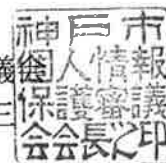 神戸市
個人情報
保護審議
会会長之印
三